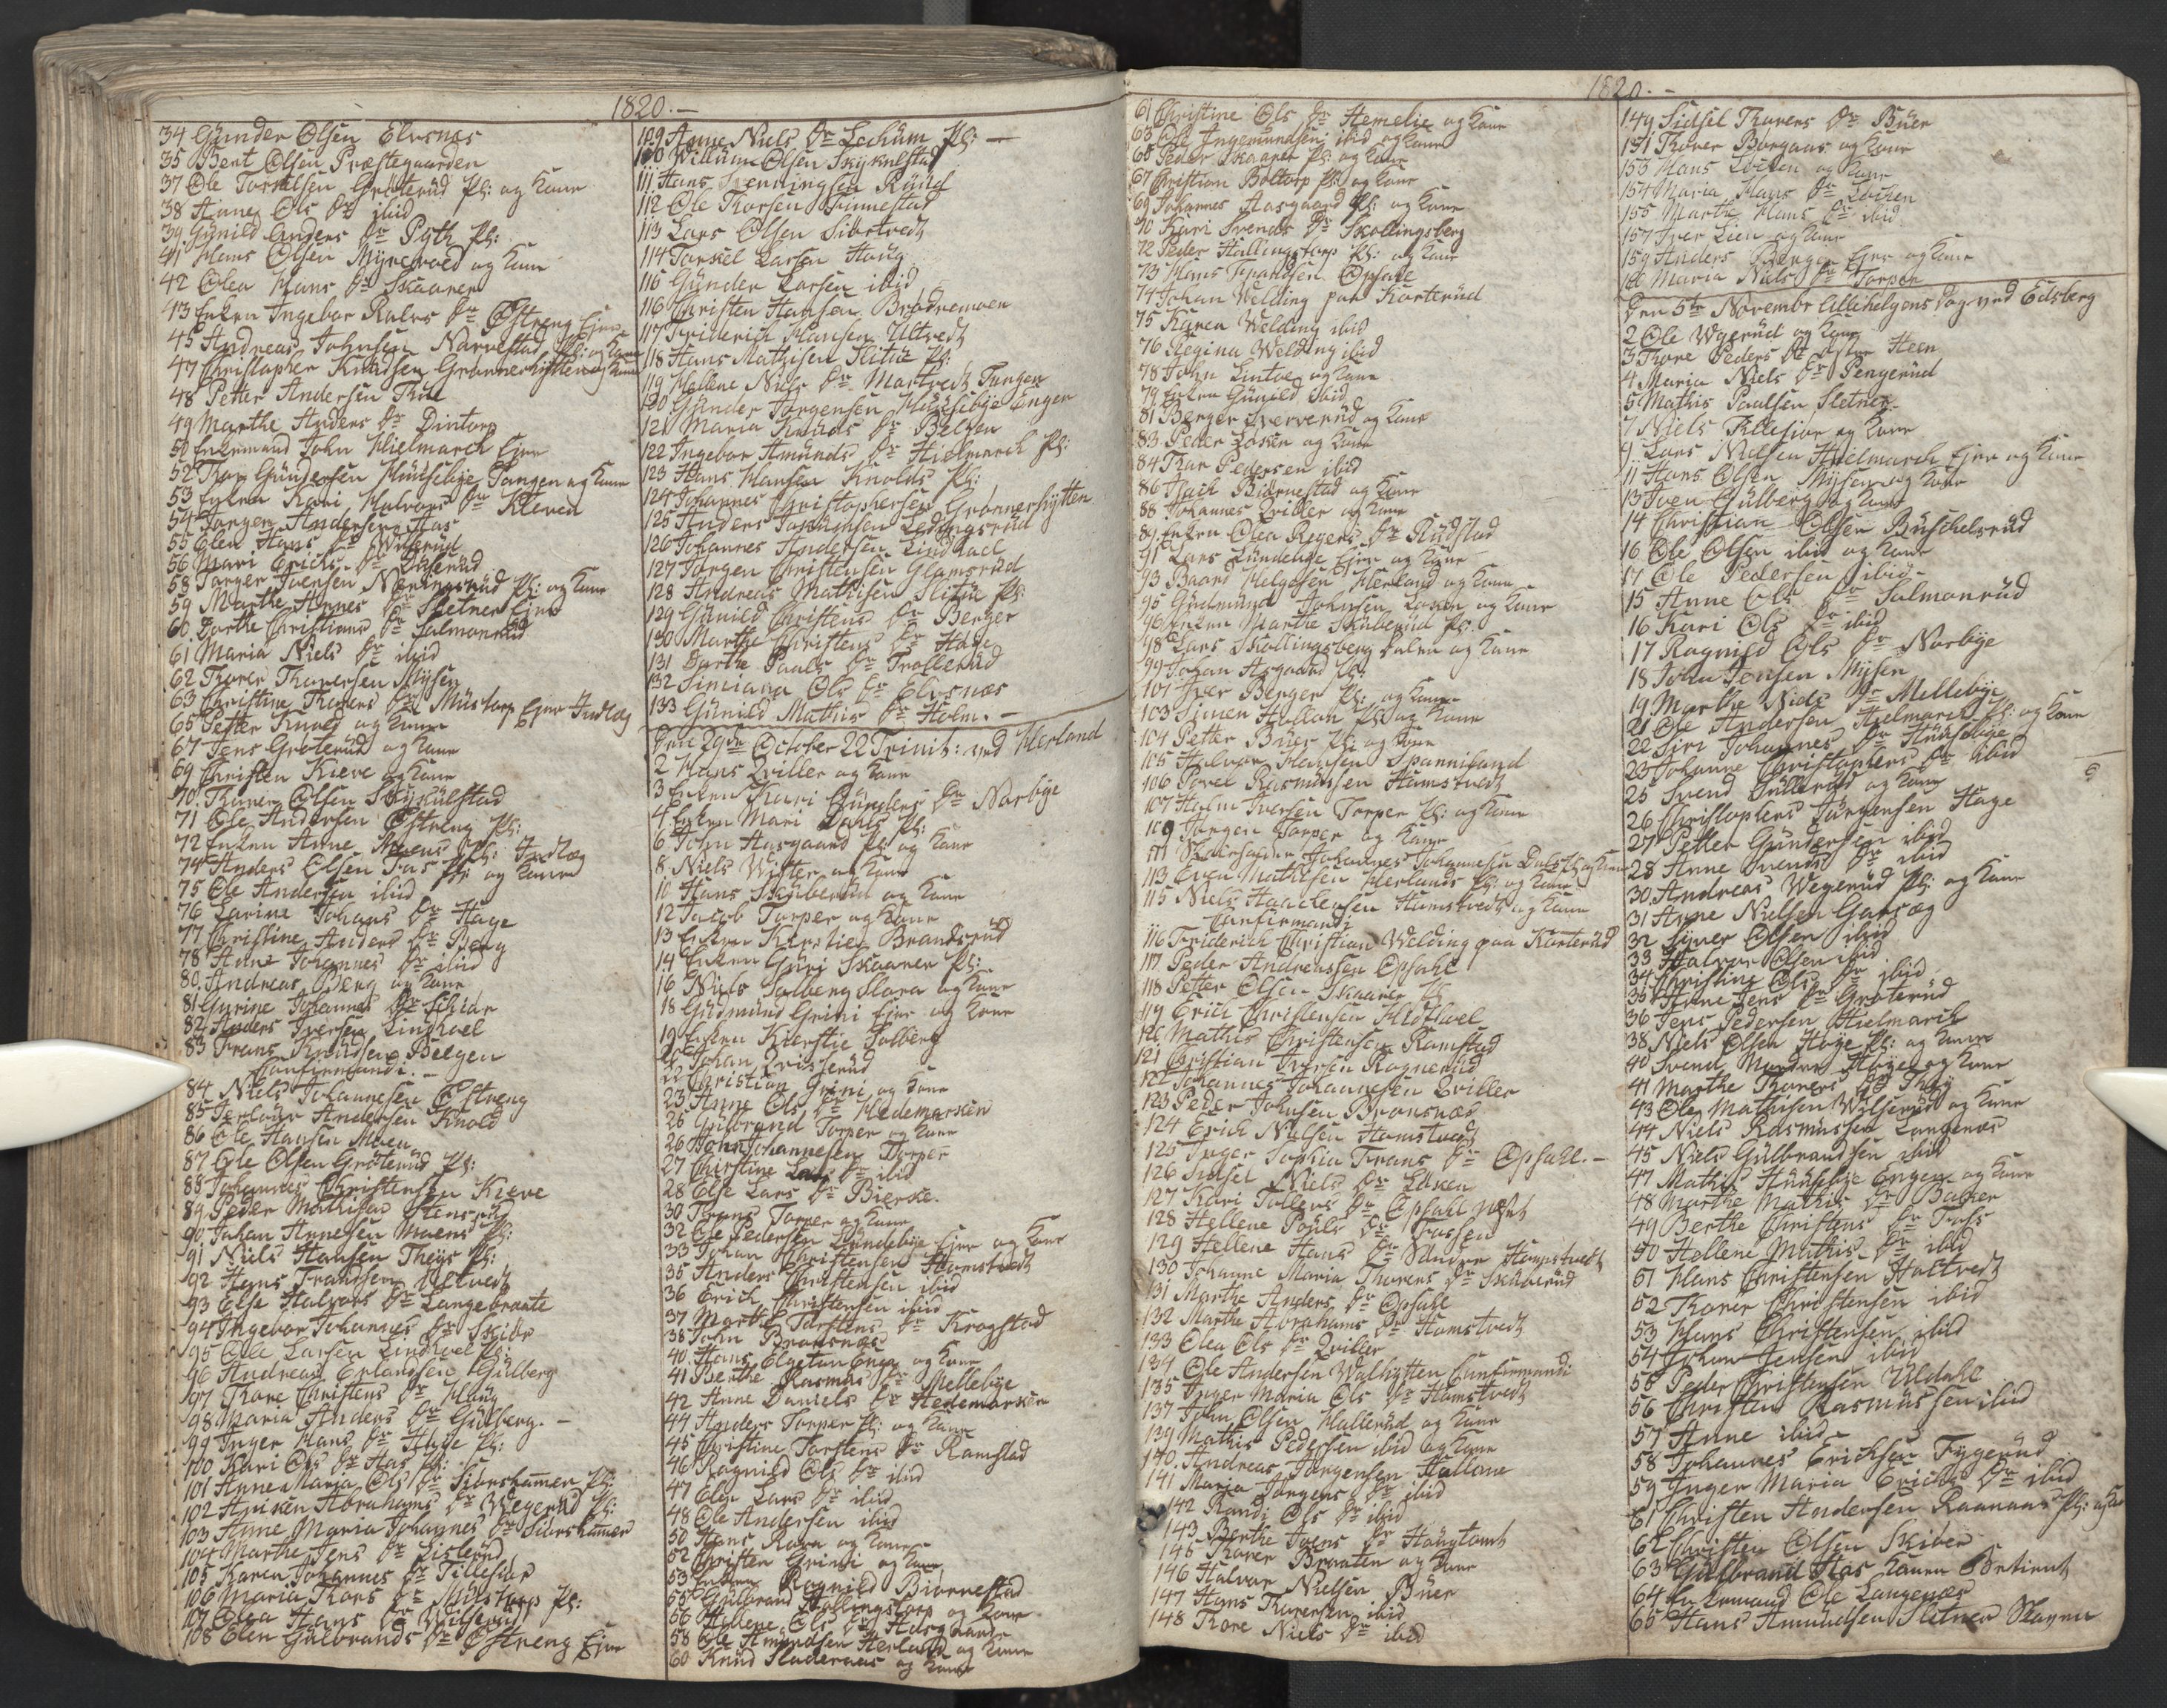 1820.-
34 Gunder Olsen Elvsnæs
35 Bent Olsen Præstegaarden
37 Ole Torkelsen Grøterud Pl: og Kone
38 Anne Ols Dr ibid
39 Gunild Anders Dr Pytt Pl:
41 Hans Olsen Myrevold og Kone
42 Olea Hans Dr Skaarer
43 Enken Ingebor Rolvs Dr Østreng Ejer
45 Andreas Johnsen Narvestad Pl: og Kone
47 Christopher Knudsen Grønnerhytten og Kone
48 Petter Andersen Thue
49 Marthe Anders Dr Dintorp
50 Enkemand John Hielmarch Ejer
52 Thor Gundersen Huuseby Tangen og Kone
53 Enken Kari Halvors Dr Kleven
54 Jørgen Andersen Aas
55 Elen Hans Dr
56 Mari Erichs Dr
58 Torger Iversen Næringsrud Pl: og Kone
59 Marthe Annes Dr Sletner Ejer
60 Dorthe Christians Dr Salmonrud
61 Maria Niels Dr ibid
62 Thorer Thorersen Mysen
63 Christine Thorers Dr Mustorp Ejer Indlæg
65 Petter Knold og Kone
67 Jens Grøterud og Kone
69 Christen Kieve og Kone
70 Thorer Olsen Skyculstad
71 Ole Andersen Østreng Pl:
72 Enken Anne Moens Pl: Indlæg
74 Anders Olsen Fos Pl: og Kone
75 Ole Andersen ibid
76 Larine Johans Dr Hage
77 Christine Anders Dr Berg
78 Anne Johannes Dr ibid
80 Andreas Berg og Kone
81 Gurine Johannes Dr Schiær
82 Anders Iversen Lindhoel
83 Frans Knudsen Belgen
Confirmandi.-
84 Niels Johannesen Østreng
85 Andersen Knold
86 Ole Hansen Moen
87 Ole Olsen Grøterud Pl:
88 Johannes Christensen Kieve
89 Peder Mathisen Stensrud
90 Johan Annesen Moens Pl:
91 Niels Hansen Thøys Pl:
92 Hans Frandsen Ultvedt
93 Else Halvors Dr Langebraate
94 Ingebor Johannes Dr Skiør
95 Ole Larsen Lindhoel Pl:
96 Andreas Erlandsen Gulberg
97 Thore Christens Dr Haug
98 Maria Anders Dr Gulberg.-
99 Inger Hans Dr Hage Pl:
100 Kari Ols Dr Aas Pl:
101 Anne Maria Ols Dr Siørshamer Pl:
102 Aniken Abrahams Dr Wegerud Pl:
103 Anne Maria Johannes Dr Siørshamer
104 Marthe Jens Dr Lislerud
105 Karen Johannes Dr Tillesiør
106 Maria Thors Dr Mustorp Pl:
107 Olea Hans Dr
108 Elen Gulbrands Dr Østreng Ejer
109 Anne Niels Dr Lechum Pl:-
110 Willum Olsen Skyculstad
111 Hans Henningsen Ruud
112 Ole Thorsen Finnestad
113 Lars Olsen Sibstvedt
114 Torkel Larsen Haug
115 Gunder Larsen ibid
116 Christen Hansen Brødremoen
117 Friderich Hansen Ultvedt
118 Hans Mathisen Slitu Pl:
119 Hellene Niels Dr Martvedt Tangen
120 Gunder Jørgensen Huusebye Enger
121 Maria Knuds Dr Belgen
122 Ingebor Amunds Dr Hielmarch Pl:
123 Hans Hansen Knolds Pl:
124 Johannes Christophersen Grønnerhytten
125 Anders Joachimsen Ledingsrud
126 Johannes Andersen Lindhoel
127 Jørgen Christensen Glamsrud
128 Andreas Mathisen Slitu Pl:
129 Gunild Christens Dr Berger
130 Marthe Christens Dr Hage
131 Dorthe Pauls Dr Trollerud
132 Simiana Ols Dr Elvsnæs
133 Gunild Mathis Dr Holm.-
Den 29de October 22 Trinit: ved Herland
2 Hans Qviller og Kone
3 Enken Kari Gunders Dr Norbye
4 Enken Mari Dahls Pl:
6 John Aasgaard Pl: og Kone
8 Niels Wister og Kone
10 Hans Skuberud og Kone
12 Jacob Torper og Kone
13 Enken Kirstie Brandsrud
14 Enken Guri Skaarer Pl:
16 Niels Solberg Slora og Kone
18 Gudmund Grini Ejer og Kone
19 Enken Kierstie Solberg
20 Johan Qvisserud
22 Christian Grini og Kone
23 Anne Ols Dr Hedemarken
25 Gulbrand Torper og Kone
26 Bent Johannesen Torper
27 Christine Lars Dr ibid
28 Else Lars Dr Bierke.
30 Thrond Torper og Kone
32 Ole Pedersen Lundebye Ejer og Kone
33 Johan Christensen Homstvedt
35 Anders Christensen ibid
36 Erich Christensen ibid
37 Marthe Torstens Dr Krogstad
38 John Bronsnæs
40 Hans Elgetun Enger og Kone
41 Berthe Rasmus Dr Mellebye
42 Anne Daniels Dr Hedemarken
44 Anders Torper Pl: og Kone
45 Christine Torstens Dr Ramstad
46 Ragnild Ols Dr ibid
47 Elen Lars Dr ibid
48 Ole Andersen ibid
50 Hans Røra og Kone
52 Christen Grini og Kone
53 Enken Ragnild Biørnestad
55 Gulbrand Hallingstorp og Kone
56 Hellene Ols Dr Aasgaard
58 Ole Amundsen Herland og Kone
60 Knud Sladeraas og Kone
1820.-
61 Christine Ols Dr Hemelie og Kone
63 Ole Ingemundsen ibid og Kone
65 Peder Skaarer Pl: og Kone
67 Christian Boltorp Pl: og Kone
69 Johannes Aasgaard Pl: og Kone
70 Kari Svends Dr Skollingsberg
72 Peder Hallingstorp Pl: og Kone
73 Hans Frandsen Opsahl
74 Johan Welding paa Korterud
75 Karen Welding ibid
76 Regina Welding ibid
78 John Lintoe og Kone
79 Enken Gunild ibid
81 Berger Sververud og Kone
83 Peder Løken og Kone
84 Thor Pedersen ibid
86 Isach Biørnestad og Kone
88 Johannes Qviller og Kone
89 Enken Olea Reyers Dr Rudstad
91 Lars Lundebye Ejer og Kone
93 Baard Helgesen Herland og Kone
95 Gudmund Johnsen Løken og Kone
96 Enken Marthe Skuberud Pl:
98 Lars Skollingsberg Enken og Kone
99 Johan Aasgaard Pl:
101 Iver Berger Pl: og Kone
103 Simen Hallan Pl: og Kone
104 Petter Buer Pl: og Kone
105 Halvor Hansen Spannisland
106 Povel Rasmussen Homstvedt
107 Holm Iversen Torper Pl: og Kone
109 Jørgen Torper og Kone
111 Johannes Johannesen Dahls Pl: og Kone
113 Even Mathisen Herlands Pl: og Kone
115 Niels Haachensen Homstvedt og Kone
Confirmandi
116 Friderich Christian Welding paa Korterud
117 Peder Andreassen Opsahl
118 Petter Olsen Skaarer Pl:
119 Erich Christensen
120 Mathis Christensen Ramstad
121 Christian Iversen Ragnerud
122 Johannes Johannesen Qviller
123 Peder Johnsen Bronsnæs
124 Erich Nielsen Homstvedt
125 Inger Sophia Frans Dr Opsahl.-
126 Sidsel Niels Dr Løken
127 Kari Tollevs Dr Opsahl
128 Hellene Pouls Dr Fossen
129 Hellene Hans Dr Søndre Homstvedt
130 Johanne Maria Thorers Dr Skuberud
131 Marthe Anders Dr Opsahl
132 Marthe Abrahams Dr Homstvedt
133 Olea Ols Dr Qviller
134 Ole Andersen Walhytten Confirmandi
135 Inger Maria Ols Dr Homstvedt
137 John Olsen Hallerud og Kone
139 Mathis Pedersen ibid og Kone
140 Andreas Jørgensen Hallane
141 Maria Jørgens Dr ibid
142 Randi Ols Dr ibid
143 Berthe Ivers Dr Haugtomt
145 Thorer Braaten og Kone
146 Halvor Nielsen Buer
147 Hans Thorersen ibid
148 Thore Niels Dr ibid
149 Sidsel Thorers Dr Buer
151 Thorer Borgaas og Kone
153 Hans Løcken og Kone
154 Maria Hans Dr Løcken
155 Marthe Hans Dr ibid
157 Iver Lien og Kone
159 Anders Berger Ejer og Kone
160 Maria Niels Dr Torper
Den 5te November Allehelgens Dag ved Edsberg
2 Ole Wgerud og Kone
3 Thore Peders Dr Heen
4 Maria Niels Dr Pengerud
5 Mathis Paulsen Sletner
7 Niels Tillesiør og Kone
9 Lars Nielsen Hielmarch Ejer og Kone
11 Hans Olsen Mysen og Kone
13 Iven Gulberg og Kone
14 Christian Olsen Buschelsrud
16 Ole Olsen ibid og Kone
17 Ole Pedersen ibid
15 Anne Ols Dr Salmonrud
16 Kari Ols Dr ibid
17 Ragnild Ols Dr Norbye
18 John Jensen Mysen
19 Marthe Niels Dr Mellebye
21 Ole Andersen Hielmarch Pl: og Kone
22 Siri Johannes Dr Huusebye
23 Johanne Christophers Dr ibid
25 Svend Trollerud og Kone
26 Christophers Jørgensen Hage
27 Petter Gundersen ibid
28 Anne Svends Dr ibid
30 Andreas Wegerud Pl: og Kone
31 Arne Nielsen Garseg
32 Siver Olsen ibid
33 Halvor Olsen ibid
34 Christine Ols Dr ibid
35 Anne Jens Dr Grøterud
36 Jens Pedersen Hielmarch
38 Niels Olsen Høye Pl: og Kone
40 Svend Nordre Høye og Kone
41 Marthe Thorers Dr Thøy
43 Ole Mathisen Wilserud og Kone
44 Niels Rasmussen Langenæs
45 Niels Gulbrandsen ibid
47 Mathis Huusebye Engen og Kone
48 Marthe Mathis Dr Bakker
49 Berthe Christens Dr Foss
50 Hellene Mathis Dr ibid
51 Hans Christensen Holtvedt
52 Thorer Christensen ibid
53 Hans Christensen ibid
54 Johan Jensen ibid
55 Peder Christensen Uldahl
56 Christen Rasmussen ibid
57 Anne ibid
58 Johannes Erichsen Fygerud
59 Inger Maria Erichs Dr ibid
61 Christen Andersen Raanaas Pl: og Kone
62 Christen Olsen Skiær
63 Gulbrand Aas Konen Betient
64 Enkemand Ole Langenæs
65 Hans Amundsen Sletner